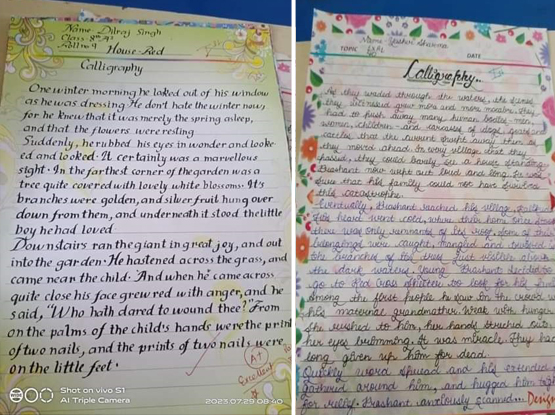 Name Dilraj Singh
Class 8th A1
Roll no 9
House-Red
Calligraphy
One winter morning he loked out of his window
as he was dressing. He don't hate the winter now,
for he knew that it was merely the spring asleep,
and that the flowers were resting
Suddenly, he rubbed his eyes in wonder and looke-
ed and looked. It certainly was a marvellous
sight. In the farthest corner of the garden was a
tree quite covered with lovely white blossoms. It's
branches were golden, and silver fruit hung over
down from them, and underneath it stood the little
boy he had loved
Downstairs ran the giant in great joy, and out
into the garden. He hastened across the grass, and
came near the child. And when he came across
quite close his face grew red with anger, and he
said, "Who hath dared to wound thee?" From
on the palms of the child's hands were the print
of two nails, and the prints of two nails were
on the little feet.
A+
Excellent
Shot on vivo S1
AI Triple Camera
2023.07.29 08:40
Name Sharma
DATE
Calligraphy..
As they waded through the waters, the scenes
they witnessed grew more and more macabre. They
had to push away many human bodies - men
women, children - and carcasses of dogs, goats and
cattle that the current swept away them as
they moved ahead. In every village that they
passed, they could barely see a house standing.
Prashant now wept out loud and long. He was
sure that his family could not have survived
this catastrophe.
Eventually, Prashant reached his village,
His heart went cold, where their home once
there was only remnants of its roof. Some of their
belongings were caught, mangled and twisted
the branches of the trees. Just visible above
the dark waters. Young Prashant decided to
go to Red Cross shelter to look for his
among the first people he saw in the crowd
his maternal grandmother. Weak with hunger
she rushed to him, her hands stretched out,
her eyes brimming. It was miracle. They had
long given up him for dead.
Quickly word spread and his extended
gathered around him, and hugged him
for relief. Prashant anxiously scanned...